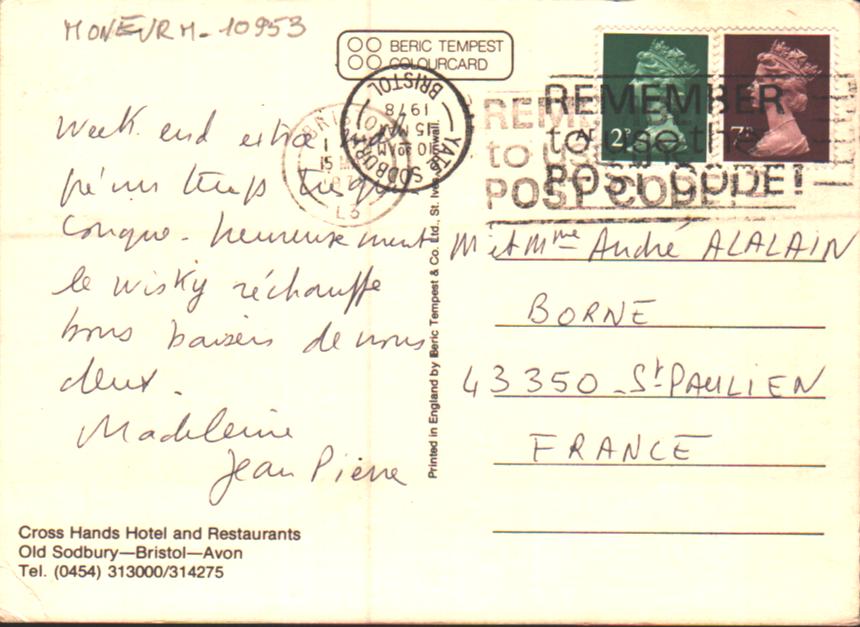 MONEVRM-10953
BERIC TEMPEST
COLOURCARD
YATE SODBURY
BRISTOL
10 30 AM
15 MAY
1978
BRISTOL
15 MAY
L3
REMEMBER
to use the
POST CODE!
2P
7P
Week end extra
temps
heureusement
le wisky réchauffe
bons baisers de nous
deux.
Madeleine
Jean Pierre
M et Mme André ALALAIN
BORNE
43350 - St PAULIEN
FRANCE
Printed in England by Beric Tempest & Co. Ltd., St. Ives, Cornwall.
Cross Hands Hotel and Restaurants
Old Sodbury—Bristol—Avon
Tel. (0454) 313000/314275